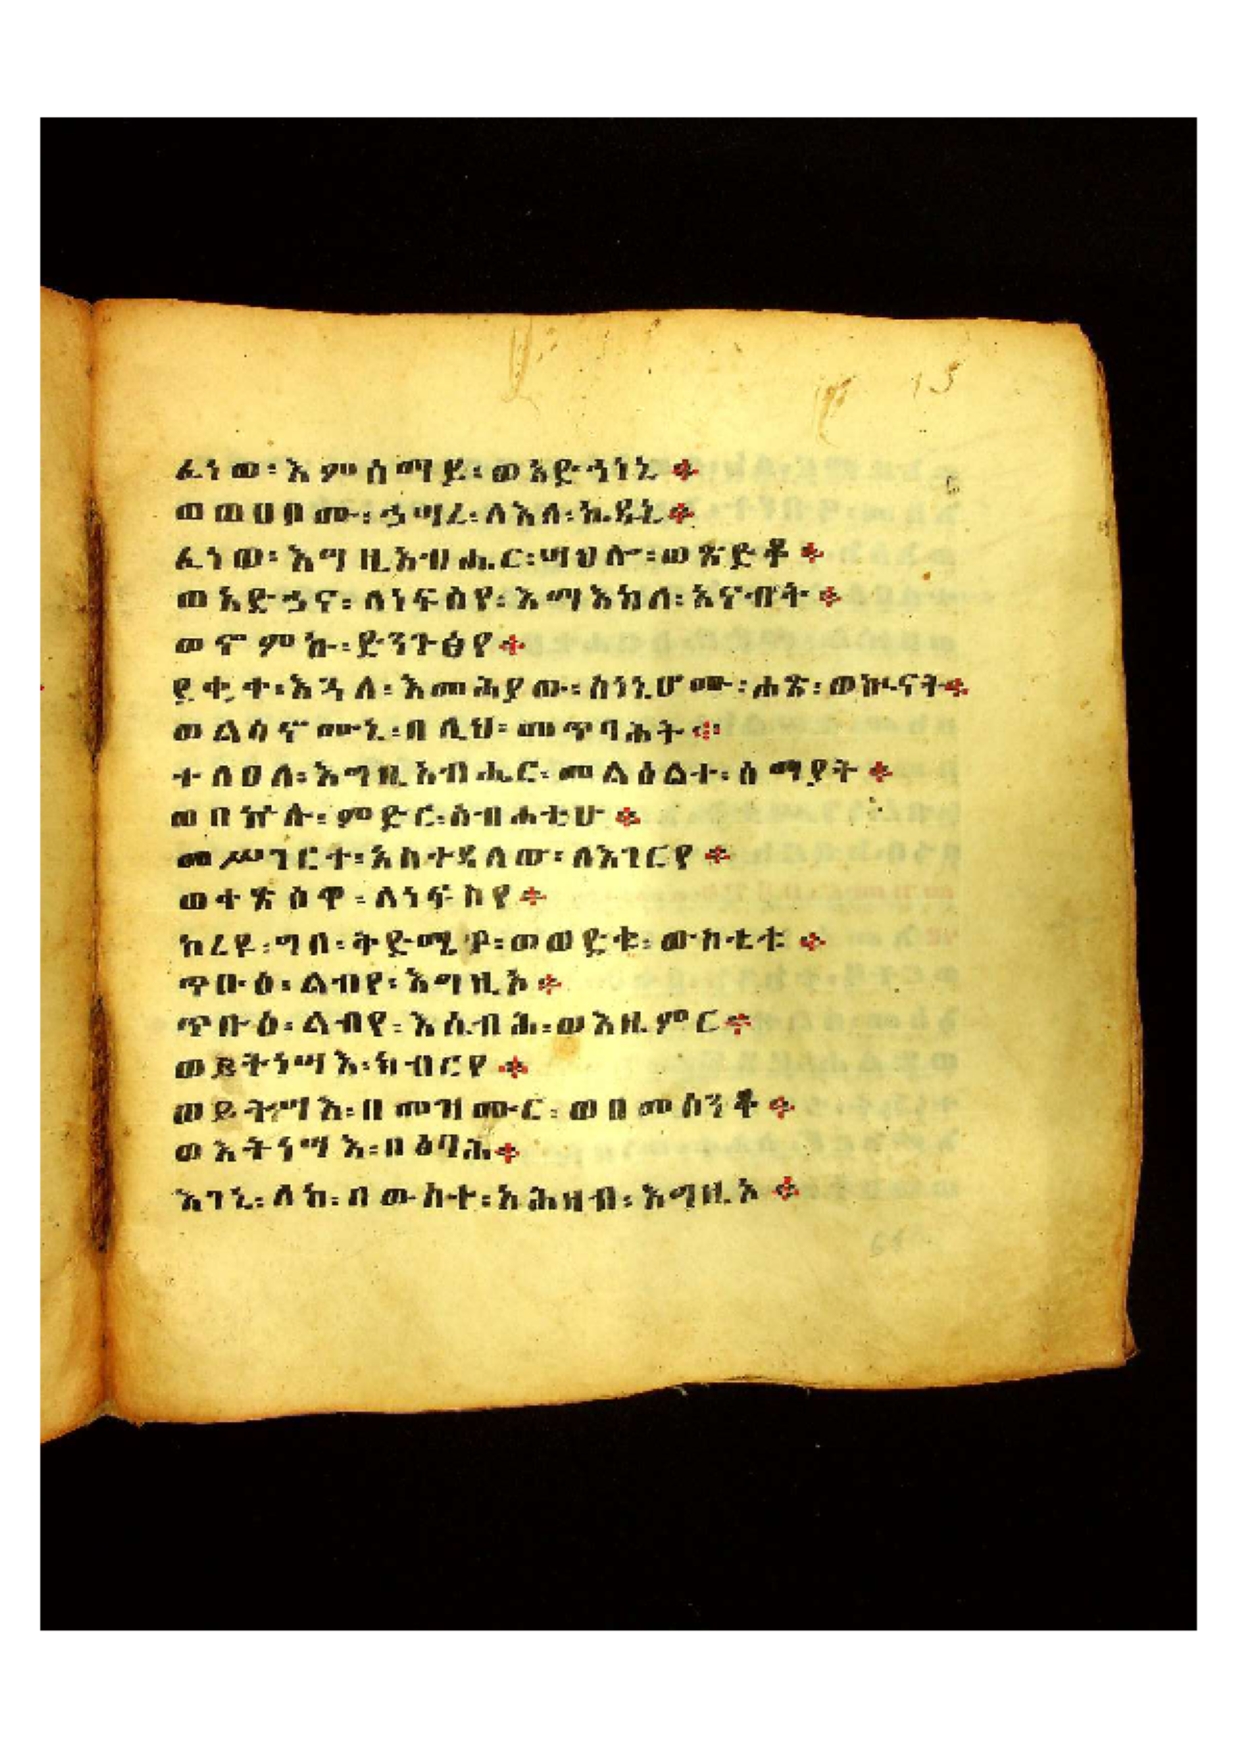 ፈነወ፡ እምሰማይ፡ ወአድኀነኒ ።
ወወሀቦሙ፡ ኃሣረ፡ ለእለ፡ ኬዱኒ ።
ፈነወ፡ እግዚአብሔር፡ ሣህሎ፡ ወጽድቆ ።
ወአድኃና፡ ለነፍስየ፡ እማእከለ፡ አናብት ።
ወኖምኩ፡ ድንጉፅየ ።
ደቂቀ፡ እጓለ፡ እመሕያው፡ ስነኒሆሙ፡ ሐጽ፡ ወኲናት ።
ወልሳኖሙኒ፡ በሊህ፡ መጥባሕት ።
ተለዐለ፡ እግዚአብሔር፡ መልዕልተ፡ ሰማያት ።
ወበኵሉ፡ ምድር፡ ስብሐቲሁ ።
መሥገርተ፡ አስተዳለው፡ ለእገርየ ።
ወተጽዕዋ፡ ለነፍስየ ።
ከረዩ፡ ግበ፡ ቅድሜየ፡ ወወድቁ፡ ውስቴቱ ።
ጥቡዕ፡ ልብየ፡ እግዚኦ ።
ጥቡዕ፡ ልብየ፡ እሴብሕ፡ ወእዜምር ።
ወይትነሣእ፡ ክብርየ ።
ወይትሣእ፡ በመዝሙር፡ ወበመሰንቆ ።
ወእትነሣእ፡ በፅባሕ ።
እገኒ፡ ለከ፡ በውስተ፡ አሕዛብ፡ እግዚኦ ።